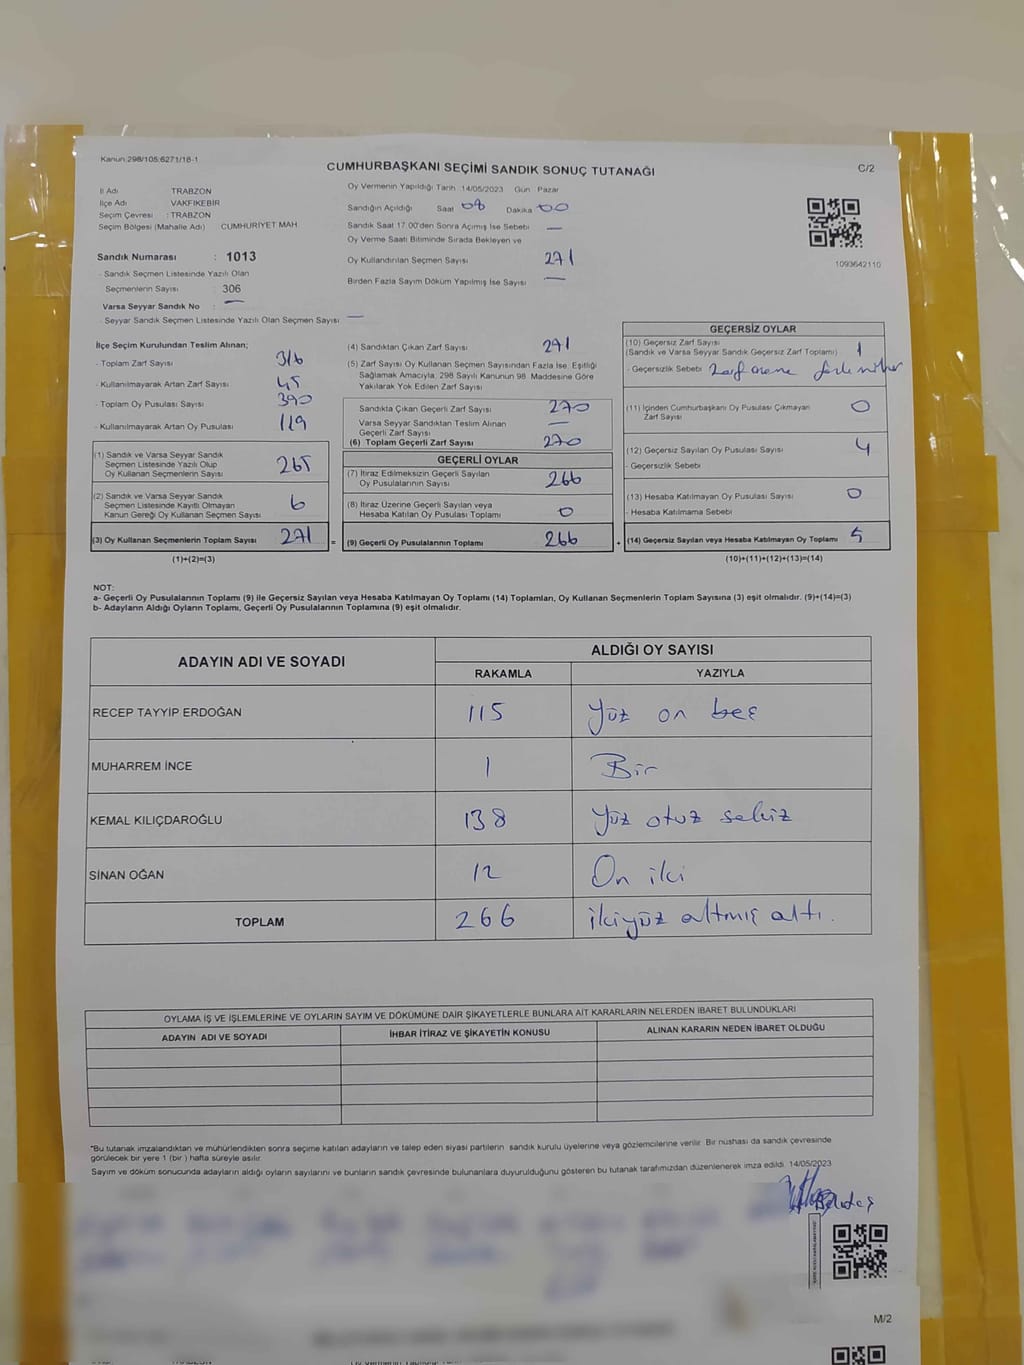 Kanun:298/105:6271/18-1
CUMHURBAŞKANI SEÇİMİ SANDIK SONUÇ TUTANAĞI
C/2
İl Adı TRABZON
İlçe Adı VAKFIKEBİR
Seçim Çevresi : TRABZON
Seçim Bölgesi (Mahalle Adı) CUMHURİYET MAH
Oy Vermenin Yapıldığı Tarih 14/05/2023 Gün Pazar
Sandığın Açıldığı Saat 08 Dakika 00
Sandık Saat 17:00'den Sonra Açımış İse Sebebi —
Oy Verme Saati Bitiminde Sırada Bekleyen ve
Oy Kullandırılan Seçmen Sayısı 271
Birden Fazla Sayım Döküm Yapılmış İse Sayısı —
1093642110
Sandık Numarası : 1013
- Sandık Seçmen Listesinde Yazılı Olan
Seçmenlerin Sayısı : 306
Varsa Seyyar Sandık No : —
- Seyyar Sandık Seçmen Listesinde Yazılı Olan Seçmen Sayısı —
İlçe Seçim Kurulundan Teslim Alınan;
- Toplam Zarf Sayısı 316
- Kullanılmayarak Artan Zarf Sayısı 45
- Toplam Oy Pusulası Sayısı 390
- Kullanılmayarak Artan Oy Pusulası 119
(1) Sandık ve Varsa Seyyar Sandık
Seçmen Listesinde Yazılı Olup
Oy Kullanan Seçmenlerin Sayısı 265
(2) Sandık ve Varsa Seyyar Sandık
Seçmen Listesinde Kayıtlı Olmayan
Kanun Gereği Oy Kullanan Seçmen Sayısı 6
(3) Oy Kullanan Seçmenlerin Toplam Sayısı 271
(1)+(2)=(3)
(4) Sandıktan Çıkan Zarf Sayısı 271
(5) Zarf Sayısı Oy Kullanan Seçmen Sayısından Fazla İse; Eşitliği
Sağlamak Amacıyla, 298 Sayılı Kanunun 98. Maddesine Göre
Yakılarak Yok Edilen Zarf Sayısı
Sandıkta Çıkan Geçerli Zarf Sayısı 270
Varsa Seyyar Sandıktan Teslim Alınan
Geçerli Zarf Sayısı —
(6) Toplam Geçerli Zarf Sayısı 270
GEÇERLİ OYLAR
(7) İtiraz Edilmeksizin Geçerli Sayılan
Oy Pusulalarının Sayısı 266
(8) İtiraz Üzerine Geçerli Sayılan veya
Hesaba Katılan Oy Pusulası Toplamı 0
= (9) Geçerli Oy Pusulalarının Toplamı 266
GEÇERSİZ OYLAR
(10) Geçersiz Zarf Sayısı
(Sandık ve Varsa Seyyar Sandık Geçersiz Zarf Toplamı) 1
- Geçersizlik Sebebi Zarf
(11) İçinden Cumhurbaşkanı Oy Pusulası Çıkmayan
Zarf Sayısı 0
(12) Geçersiz Sayılan Oy Pusulası Sayısı 4
- Geçersizlik Sebebi
(13) Hesaba Katılmayan Oy Pusulası Sayısı 0
- Hesaba Katılmama Sebebi
+ (14) Geçersiz Sayılan veya Hesaba Katılmayan Oy Toplamı 5
(10)+(11)+(12)+(13)=(14)
NOT:
a- Geçerli Oy Pusulalarının Toplamı (9) ile Geçersiz Sayılan veya Hesaba Katılmayan Oy Toplamı (14) Toplamları, Oy Kullanan Seçmenlerin Toplam Sayısına (3) eşit olmalıdır. (9)+(14)=(3)
b- Adayların Aldığı Oyların Toplamı, Geçerli Oy Pusulalarının Toplamına (9) eşit olmalıdır.
ADAYIN ADI VE SOYADI
ALDIĞI OY SAYISI
RAKAMLA YAZIYLA
RECEP TAYYİP ERDOĞAN 115 Yüz on beş
MUHARREM İNCE 1 Bir
KEMAL KILIÇDAROĞLU 138 Yüz otuz sekiz
SİNAN OĞAN 12 On iki
TOPLAM 266 ikiyüz altmış altı.
OYLAMA İŞ VE İŞLEMLERİNE VE OYLARIN SAYIM VE DÖKÜMÜNE DAİR ŞİKAYETLERLE BUNLARA AİT KARARLARIN NELERDEN İBARET BULUNDUKLARI
ADAYIN ADI VE SOYADI İHBAR İTİRAZ VE ŞİKAYETİN KONUSU ALINAN KARARIN NEDEN İBARET OLDUĞU
*Bu tutanak imzalandıktan ve mühürlendikten sonra seçime katılan adayların ve talep eden siyasi partilerin sandık kurulu üyelerine veya gözlemcilerine verilir. Bir nüshası da sandık çevresinde
görülecek bir yere 1 (bir ) hafta süreyle asılır.
Sayım ve döküm sonucunda adayların aldığı oyların sayılarını ve bunların sandık çevresinde bulunanlara duyurulduğunu gösteren bu tutanak tarafımızdan düzenlenerek imza edildi. 14/05/2023
M/2